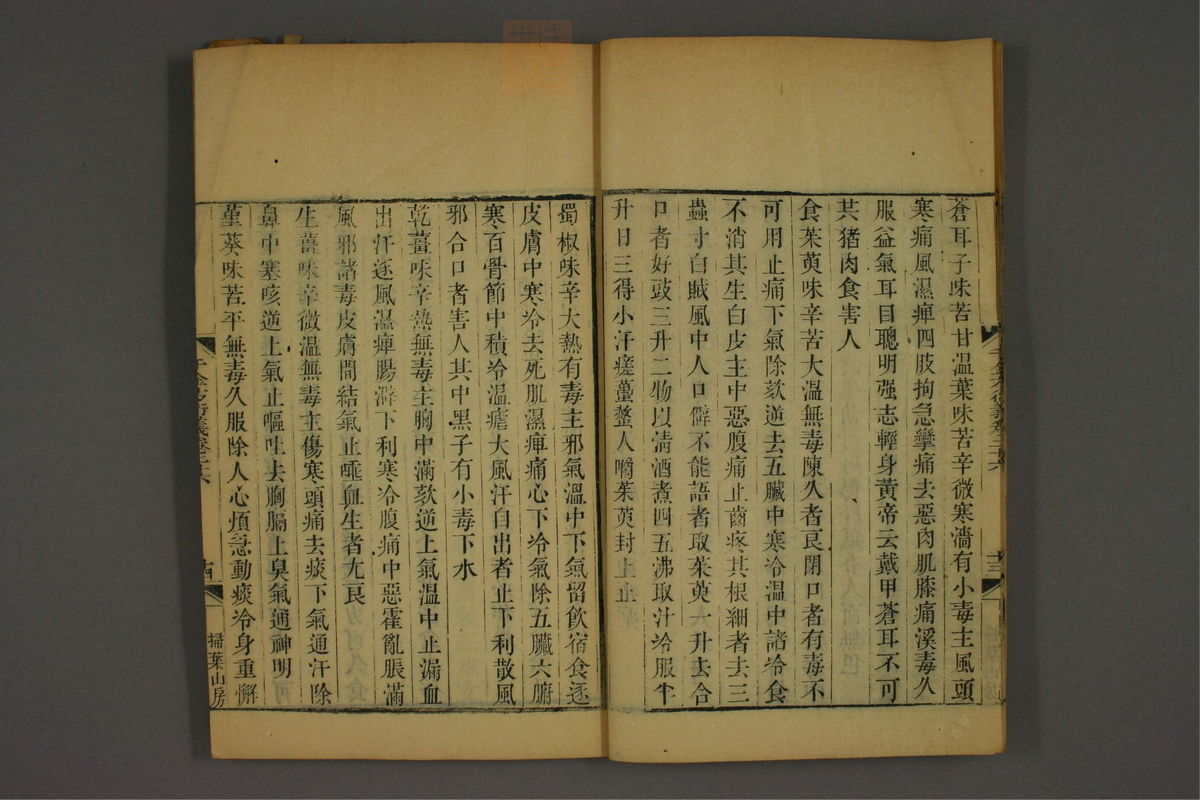 蒼耳子味苦甘溫葉味苦辛微寒濇有小毒主風頭
寒痛風濕痺四肢拘急攣痛去惡肉肌膝痛溪毒久
服益氣耳目聰明强志輕身黃帝云戴甲蒼耳不可
共猪肉食害人
食茱萸味辛苦大溫無毒陳久者良閉口者有毒不
可用止痛下氣除欬逆去五臟中寒冷溫中諸冷食
不消其生白皮主中惡腹痛止齒疼其根細者去三
蟲寸白賊風中人口僻不能語者取茱萸一升去合
口者好豉三升二物以淸酒煮四五沸取汁冷服半
升日三得小汗瘥蠆螫人嚼茱萸封上止
蜀椒味辛大熱有毒主邪氣溫中下氣留飮宿食逐
皮膚中寒冷去死肌濕痺痛心下冷氣除五臟六腑
寒百骨節中積冷溫瘧大風汗自出者止下利散風
邪合口者害人其中黑子有小毒下水
乾薑味辛熱無毒主胸中滿欬逆上氣溫中止漏血
出汗逐風濕痺腸澼下利寒冷腹痛中惡霍亂脹滿
風邪諸毒皮膚間結氣止唾血生者尤良
生薑味辛微溫無毒主傷寒頭痛去痰下氣通汗除
鼻中塞咳逆上氣止嘔吐去胸膈上臭氣通神明
菫葵味苦平無毒久服除人心煩急動痰冷身重懈
掃葉山房